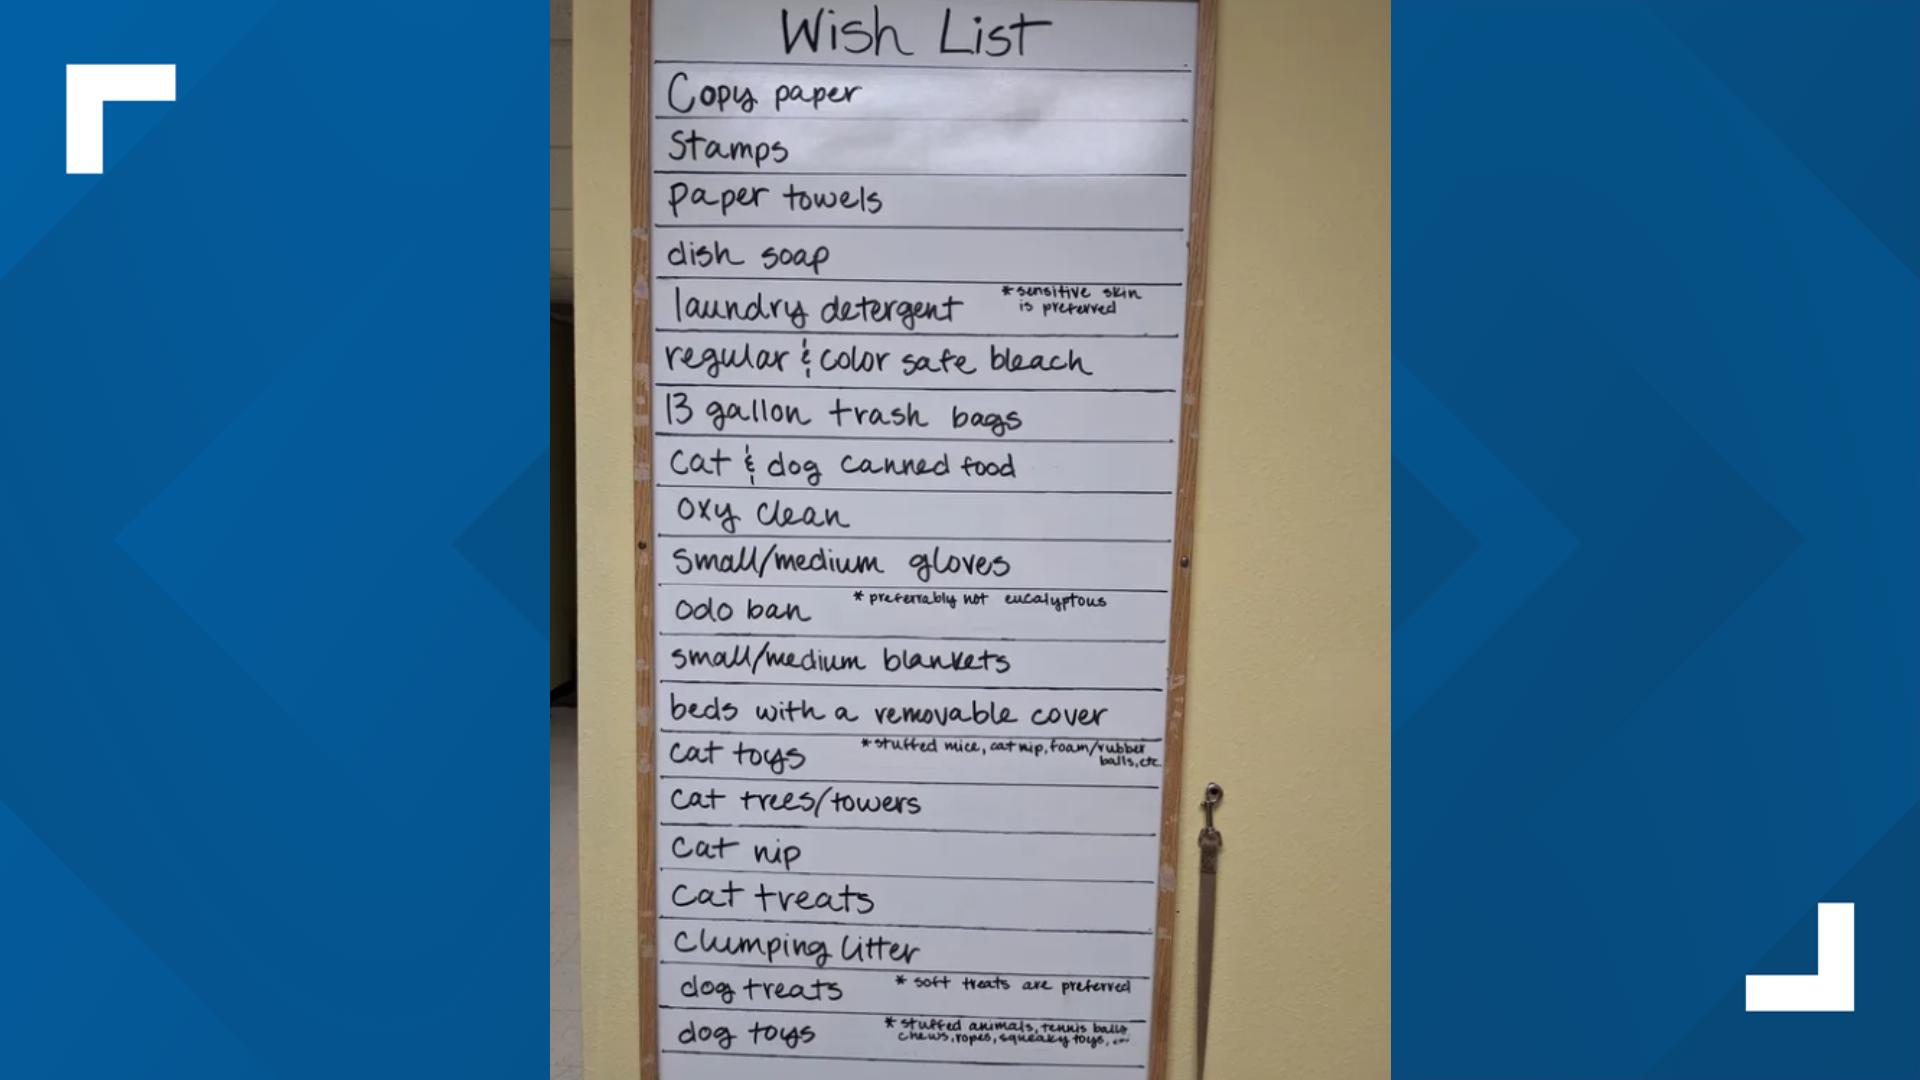 Wish List
Copy paper
Stamps
paper towels
dish soap
laundry detergent *sensitive skin
is preferred
regular & color safe bleach
13 gallon trash bags
cat & dog canned food
oxy clean
small/medium gloves
odo ban *preferrably not eucalyptous
small/medium blankets
beds with a removable cover
cat toys *stuffed mice, cat nip, foam/rubber
balls, etc.
cat trees/towers
cat nip
cat treats
Clumping litter
dog treats *soft treats are preferred
dog toys *stuffed animals, tennis balls
chews, ropes, squeaky toys,